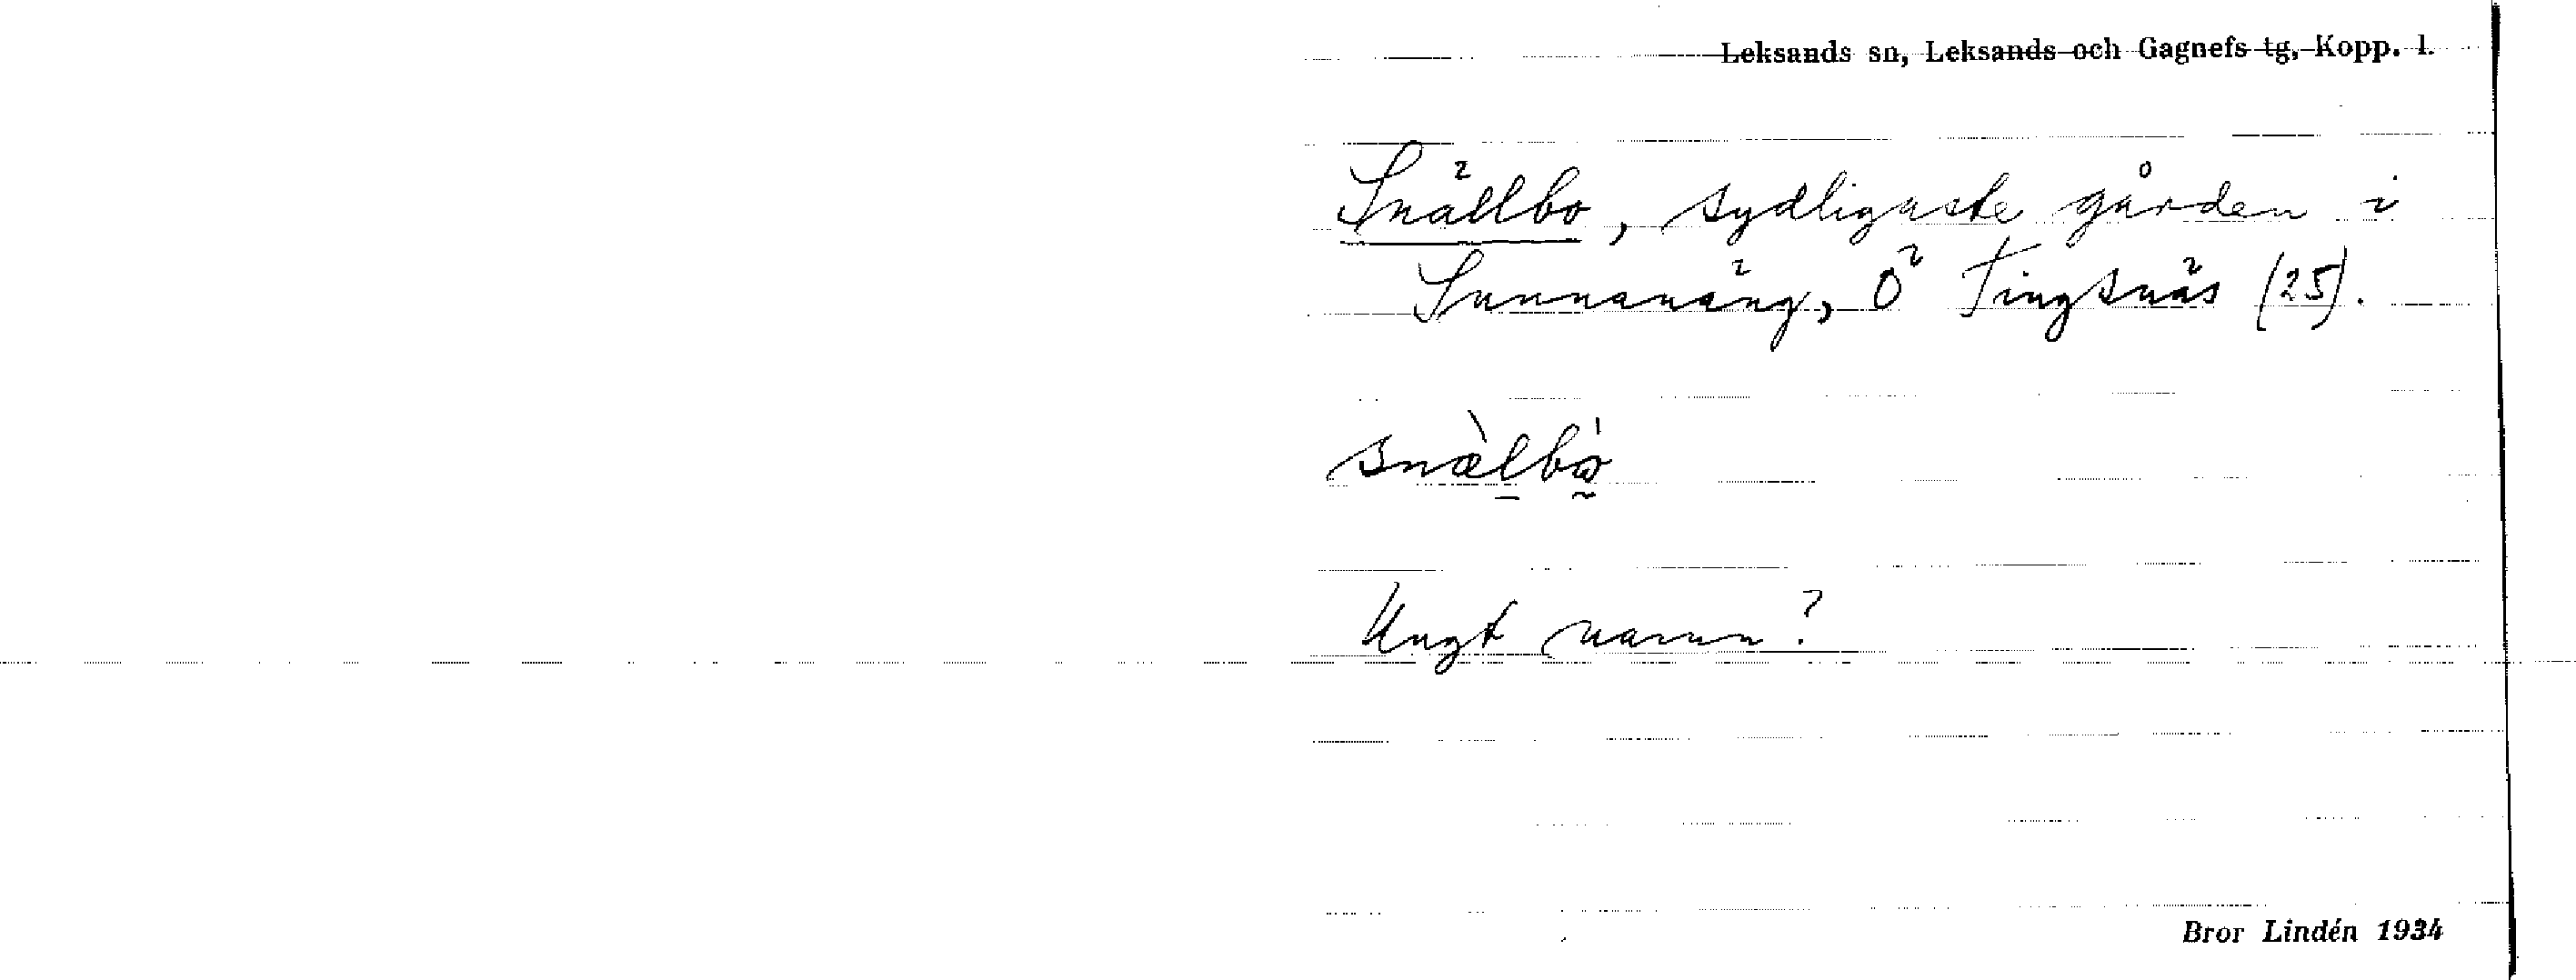 Leksands sn, Leksands och Gagnefs tg, Kopp. l.
Snällbo, sydligaste gården i
Sunnanäng, Ö Tingsnäs (25).
snæ̀lbò
Ungt namn?
Bror Lindén 1934